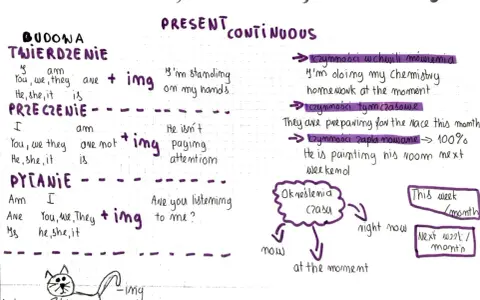 PRESENT CONTINUOUS
BUDOWA
TWIERDZENIE
I am
You, we, they are + ing
He, she, it is
I'm standing
on my hands
PRZECZENIE
I am
You, we they are not + ing
He, she, it is
He isn't
paying
attention
PYTANIE
Am I
Are You, we, They + ing
Is he, she, it
Are you listening
to me?
-ing
czynności w chwili mówienia
I'm doing my chemistry
homework at the moment
czynności tymczasowe
They are preparing for the race this month
czynności zaplanowane → 100%
He is painting his room next
weekend
Określenia
czasu
now
at the moment
right now
This week
/month
Next week/
month